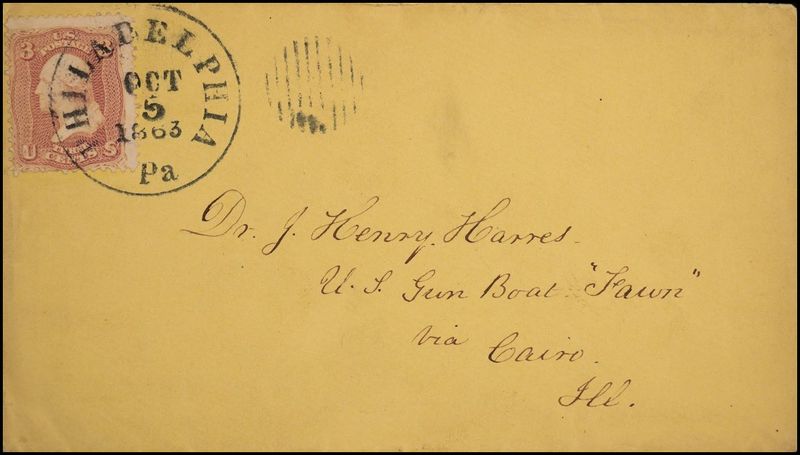 3
U.S.
POSTAGE
U
CENTS
S
PHILADELPHIA
OCT
5
1863
Pa
Dr. J. Henry Harres
U. S. Gun Boat "Fawn"
via
Cairo.
Ill.